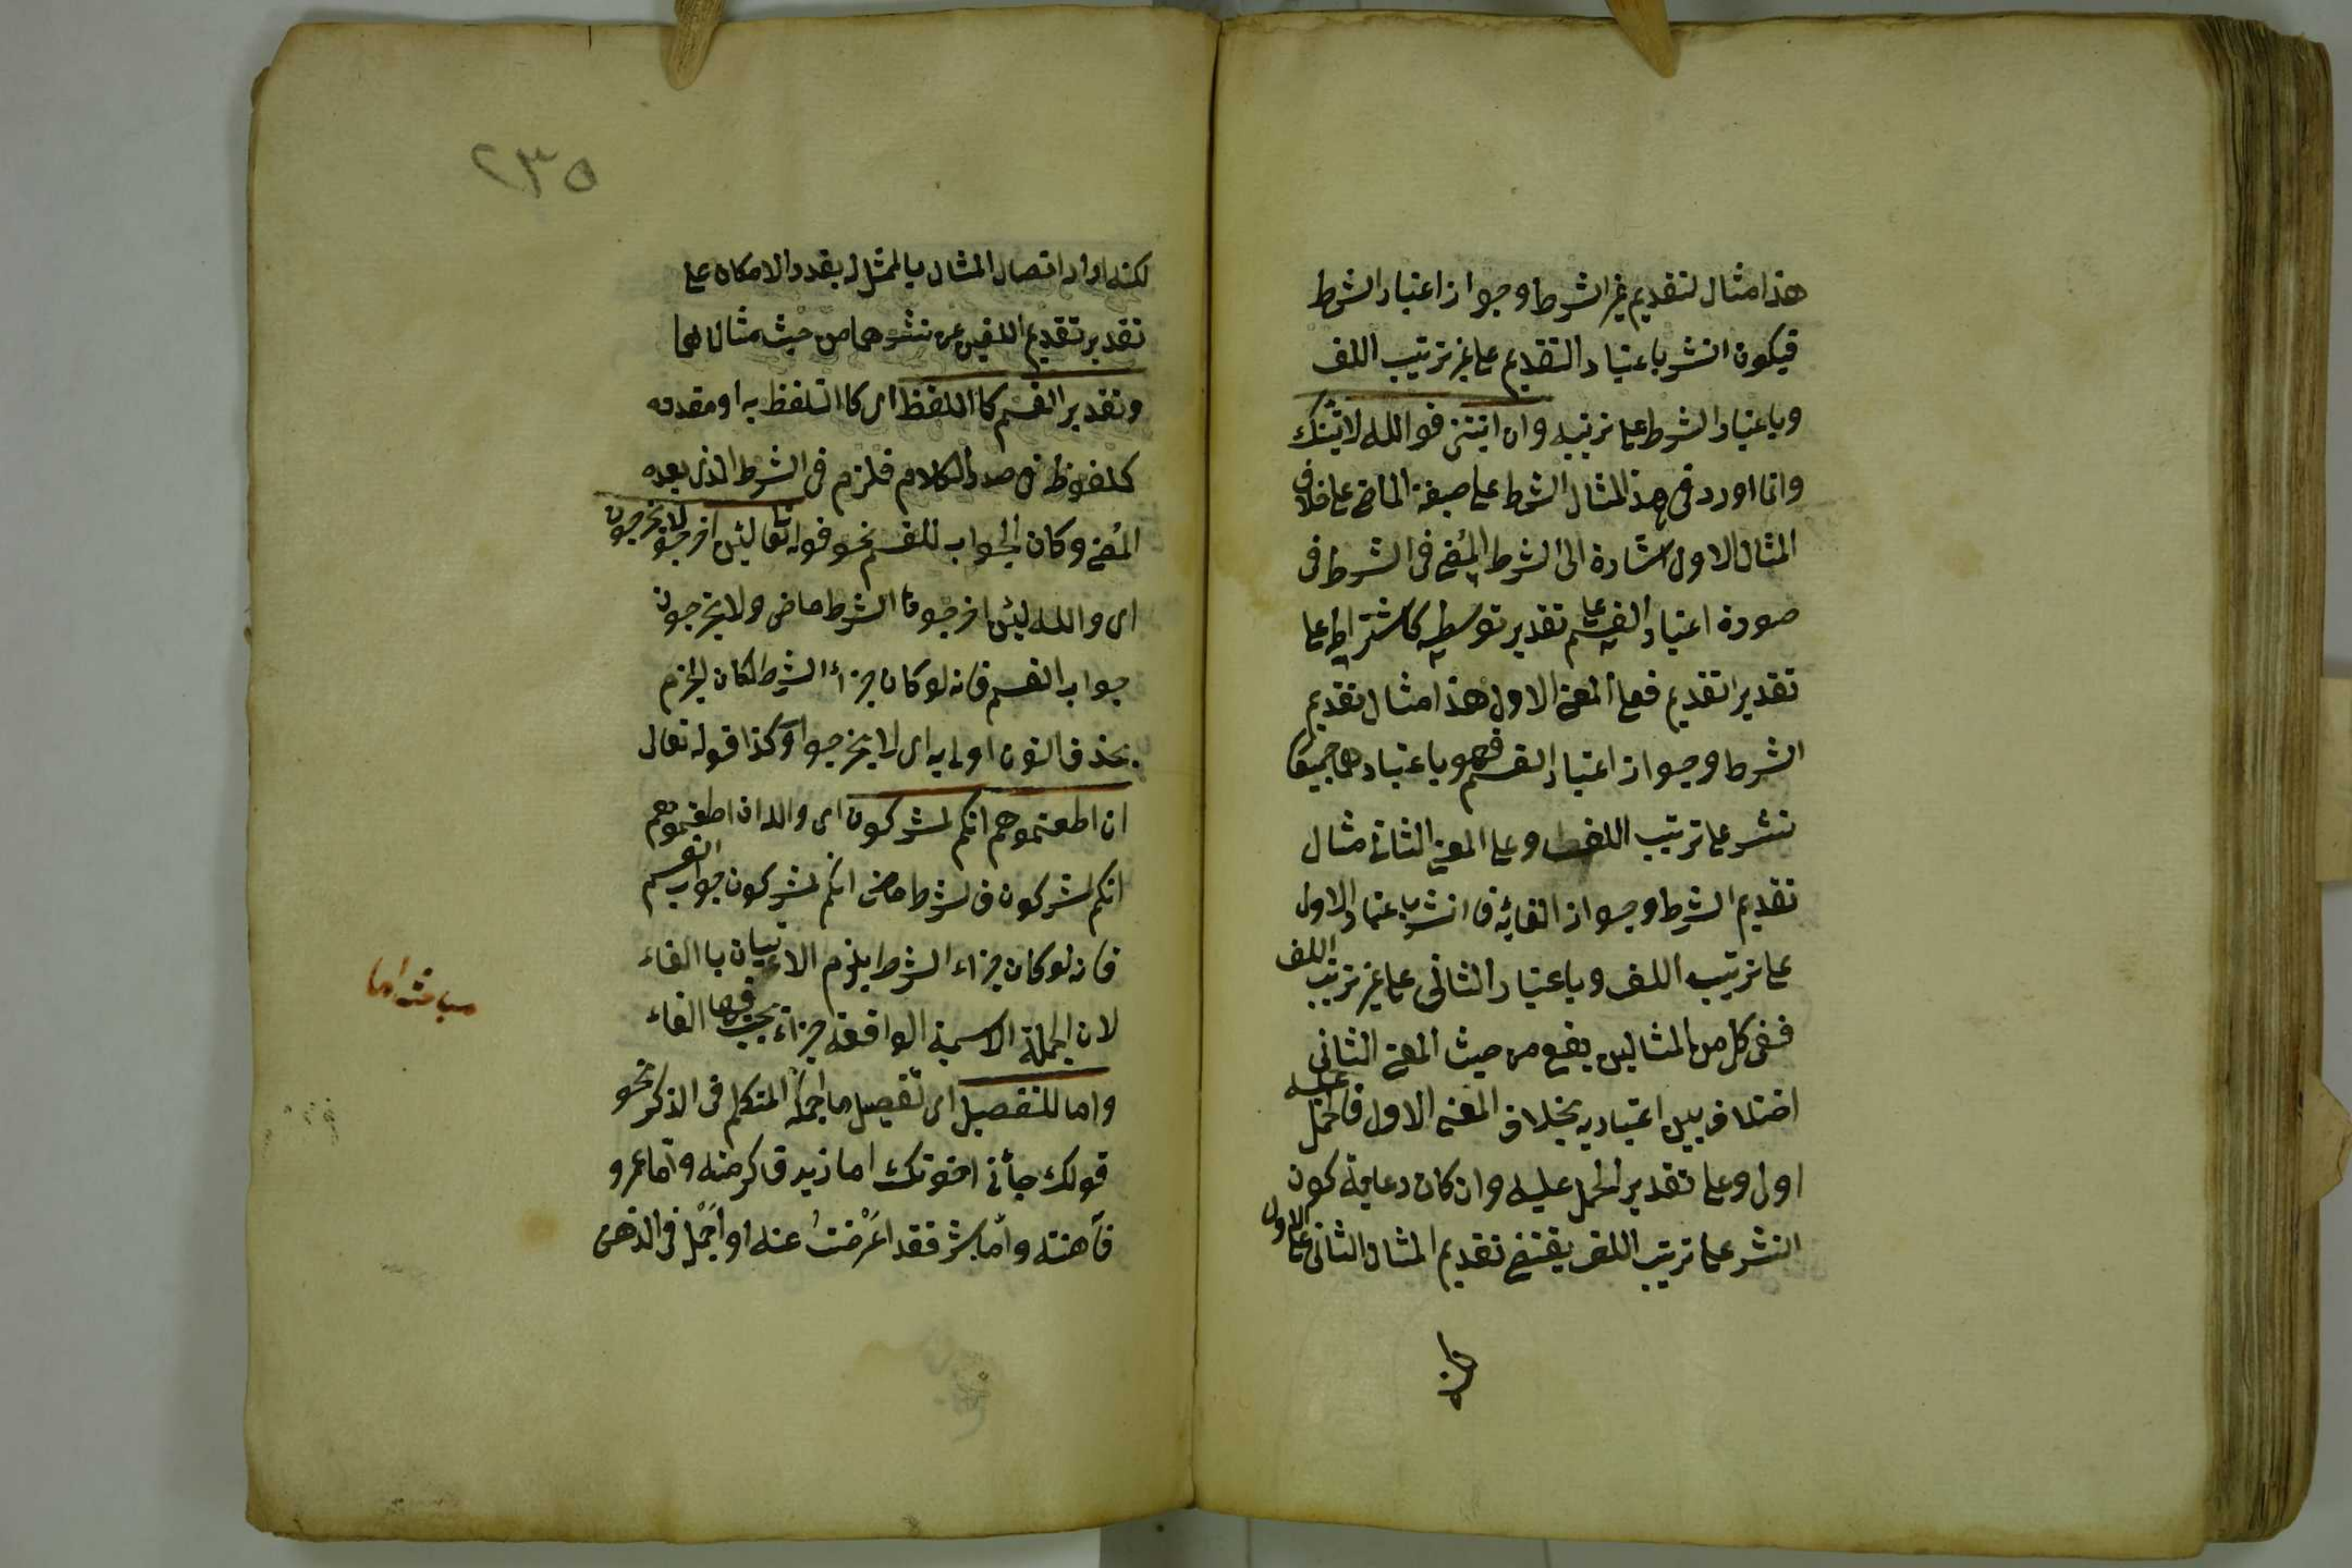 هذا مثال لتقديم غير الشرط وجواز اعتبار الشرط
فيكون النشر باعتبار التقديم على غير ترتيب اللف
وباعتبار الشرط على ترتيبه وان اتيتنى فوالله لاتينك
وانما اورد فى هذا المثال الشرط على صيغة الماضى على خلاف
المثال الاول اشارة الى الشرط المضى فى الشرط فى
صورة اعتبار القسم على تقدير توسطه كاشتراطه على
تقدير التقديم فعلى المعنى الاول هذا مثال تقديم
الشرط وجواز اعتبار القسم فهو باعتبارهما جميعا
نشر على ترتيب اللف وعلى المعنى الثانى مثال
تقديم الشرط وجواز الغائه فالنشر باعتبار الاول
على ترتيب اللف وباعتبار الثانى على غير ترتيب اللف
ففى كل من المثالين يقع من حيث المعنى الثانى
اختلاف بين اعتباريه بخلاف المعنى الاول فالحمل عليه
اولى وعلى تقدير الحمل عليه وان كان رعاية كون
النشر على ترتيب اللف يقتضى تقديم المثال الثانى على الاول
٢٣٥
لكنه اراد اتصال المثال بالممثل بقدر الامكان على
تقدير تقديم اللفين عن نشرهما من حيث مثالهما
وتقدير القسم كا اللفظ اى كا التلفظ به او مقدره
كملفوظ فى صدر الكلام فلزم فى الشرط الذى بعده
المضى وكان الجواب للقسم نحو قوله تعالى لئن اخرجوا لا يخرجون
اى والله لئن اخرجوا فالشرط ماض ولا يخرجون
جواب القسم فانه لو كان جزاء الشرط لكان الجزم
بحذف النون اولى به اى لا يخرجوا وكذا قوله تعالى
ان اطعتموهم انكم لمشركون اى والله ان اطعتموهم
انكم لمشركون فالشرط ماض انكم لمشركون جواب القسم
فانه لو كان جزاء الشرط يلزم الاتيان با الفاء
لان الجملة الاسمية الواقعة جزاء يجب فيها الفاء
واما للتفصيل اى تفصيل ما اجمله المتكلم فى الذكر نحو
قولك جاءنى اخوتك اما زيد فاكرمته واما عمرو
فاهنته واما بشر فقد اعرضت عنه او اجمل فى الذهن
مباحث اما